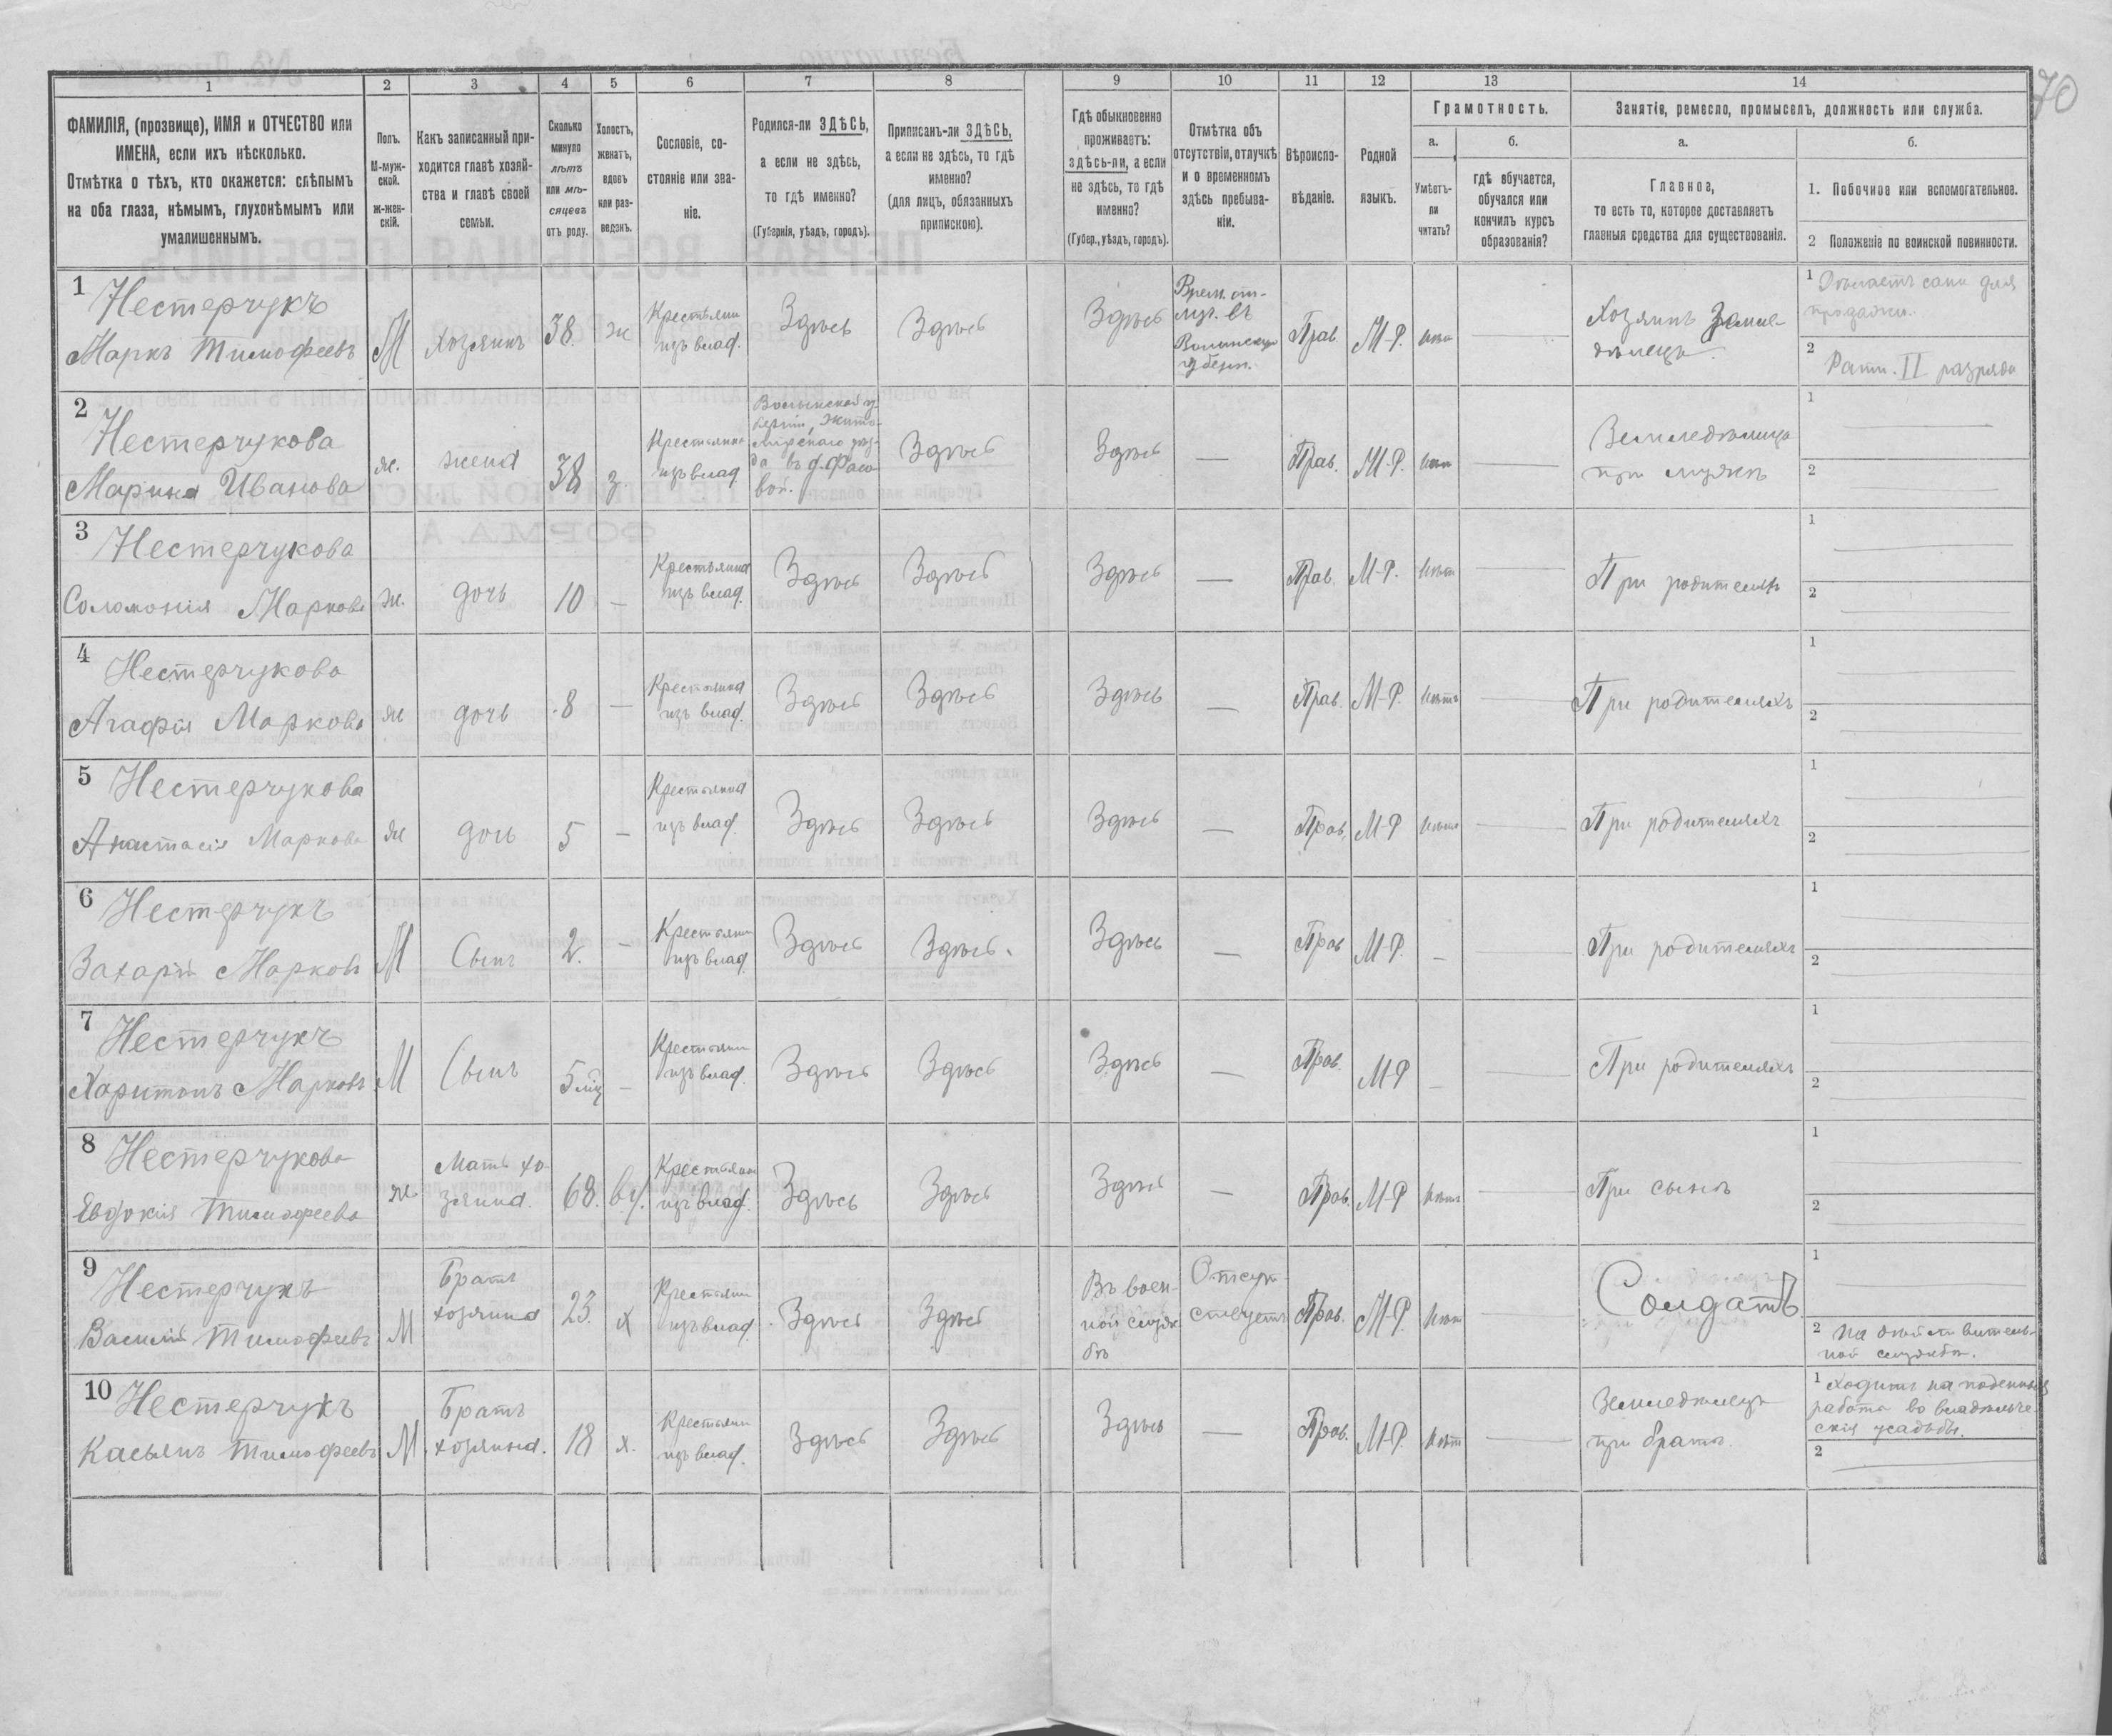 70
1
2
3
4
5
6
7
8
9
10
11
12
13
14
ФАМИЛІЯ, (прозвище), ИМЯ и ОТЧЕСТВО или
ИМЕНА, если ихъ нѣсколько.
Отмѣтка о тѣхъ, кто окажется: слѣпымъ
на оба глаза, нѣмымъ, глухонѣмымъ или
умалишеннымъ.
Полъ.
М-муж-
ской.
ж-жен-
скій.
Какъ записанный при-
ходится главѣ хозяй-
ства и главѣ своей
семьи.
Сколько
минуло
лѣтъ
или мѣ-
сяцевъ
отъ роду.
Холостъ,
женатъ,
вдовъ
или раз-
веденъ.
Сословіе, со-
стояніе или зва-
ніе.
Родился-ли ЗДѢСЬ,
а если не здѣсь,
то гдѣ именно?
(Губернія, уѣздъ, городъ).
Приписанъ-ли ЗДѢСЬ,
а если не здѣсь, то гдѣ
именно?
(для лицъ, обязанныхъ
припискою).
Гдѣ обыкновенно
проживаетъ:
здѣсь-ли, а если
не здѣсь, то гдѣ
именно?
(Губер., уѣздъ, городъ).
Отмѣтка объ
отсутствіи, отлучкѣ
и о временномъ
здѣсь пребыва-
ніи.
Вѣроиспо-
вѣданіе.
Родной
языкъ.
Грамотность.
а.
Умѣетъ-
ли
читать?
б.
гдѣ обучается,
обучался или
кончилъ курсъ
образованія?
Занятія, ремесло, промыселъ, должность или служба.
а.
Главное,
то есть то, которое доставляетъ
главныя средства для существованія.
б.
1. Побочное или вспомогательное.
2 Положеніе по воинской повинности.
1 Нестерчукъ
Маркъ Тимофеевъ
М
Хозяинъ
38.
ж
Крестьянин
изъ влад.
Здѣсь
Здѣсь
Здѣсь
Врем. от-
луч. въ
Волынскую
губерн.
Прав.
М-Р.
Хозяинъ Земле-
дѣлецъ.
1 Дѣлаетъ сани для
продажи.
2 Ратн. II разряда
2 Нестерчукова
Марина Иванова
ж.
жена
38
з.
Крестьянка
изъ влад.
Волынской гу-
берніи, Жито-
мірскаго уѣз-
да въ д. Фасо
вой.
Здѣсь
Здѣсь
—
Прав.
М-Р.
Земледѣлица
при мужѣ
1
2
3 Нестерчукова
Соломонія Маркова
ж.
дочь
10
—
Крестьянка
изъ влад.
Здѣсь
Здѣсь
Здѣсь
—
Прав.
М-Р.
Нѣтъ
При родителяхъ
1
2
4 Нестерчукова
Агафія Маркова
ж
дочь
8
—
Крестьянка
изъ влад.
Здѣсь
Здѣсь
Здѣсь
—
Прав.
М-Р.
Нѣтъ
При родителяхъ
1
2
5 Нестерчукова
Анастасія Маркова
ж
дочь
5
—
Крестьянка
изъ влад.
Здѣсь
Здѣсь
Здѣсь
—
Прав.
М-Р
Нѣтъ
При родителяхъ
1
2
6 Нестерчукъ
Захарій Марковъ
М
Сынъ
2.
—
Крестьянин
изъ влад.
Здѣсь
Здѣсь.
Здѣсь
—
Прав
М-Р.
—
При родителяхъ
1
2
7 Нестерчукъ
Харитонъ Марковъ
М
Сынъ
5 мѣс
—
Крестьянин
изъ влад.
Здѣсь
Здѣсь
Здѣсь
—
Прав.
М-Р
—
При родителяхъ
1
2
8 Нестерчукова
Евдокія Тимофеева
ж
Мать хо-
зяина.
68.
вд.
Крестьянка
изъ влад.
Здѣсь
Здѣсь
Здѣсь
—
Прав.
М-Р
Нѣтъ
При сынѣ
1
2
9 Нестерчукъ
Василій Тимофеевъ
М
Братъ
хозяина
23.
х
Крестьянин
изъ влад.
Здѣсь
Здѣсь
Въ воен-
ной служ
бѣ
Отсут-
ствуетъ
Прав.
М-Р.
Нѣтъ
Солдатъ
1
2 На дѣйствитель-
ной службѣ.
10 Нестерчукъ
Касьянъ Тимофеевъ
М
Братъ
хозяина.
18
х.
Крестьянин
изъ влад.
Здѣсь
Здѣсь
Здѣсь
—
Прав.
М-Р.
Нѣт
Земледѣлецъ
при братѣ.
1 Ходитъ на поденныя
работы во владѣльче-
скія усадьбы.
2